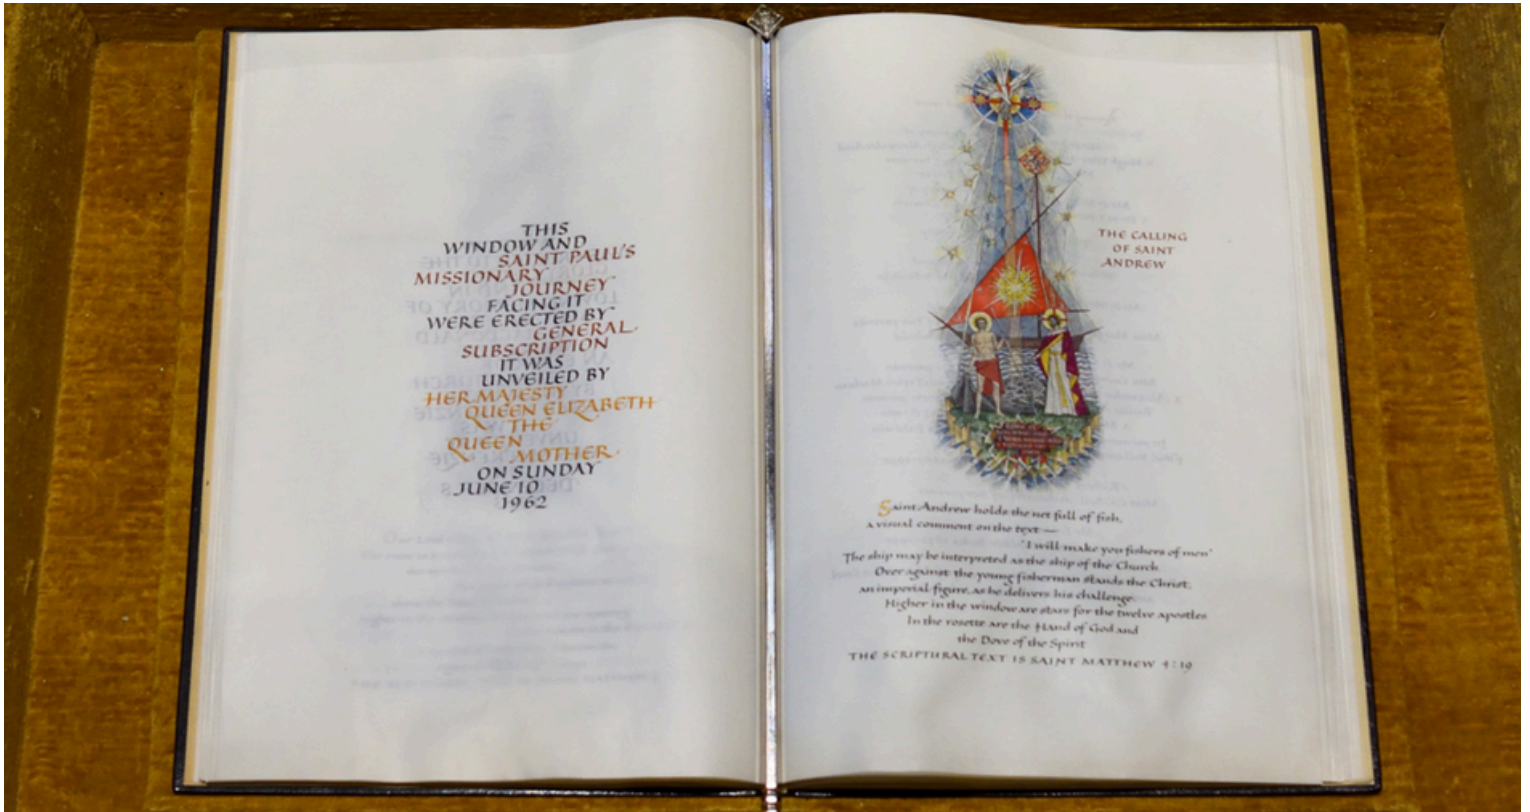 THIS
WINDOW AND
SAINT PAUL'S
MISSIONARY
JOURNEY
FACING IT
WERE ERECTED BY
GENERAL
SUBSCRIPTION
IT WAS
UNVEILED BY
HER MAJESTY
QUEEN ELIZABETH
THE
QUEEN
MOTHER
ON SUNDAY
JUNE 10
1962
THE CALLING
OF SAINT
ANDREW
Saint Andrew holds the net full of fish,
a visual comment on the text —
'I will make you fishers of men'
The ship may be interpreted as the ship of the Church
Over against the young fisherman stands the Christ,
an imperial figure, as he delivers his challenge
Higher in the window are stars for the twelve apostles
In the rosette are the Hand of God and
the Dove of the Spirit
THE SCRIPTURAL TEXT IS SAINT MATTHEW 4:19